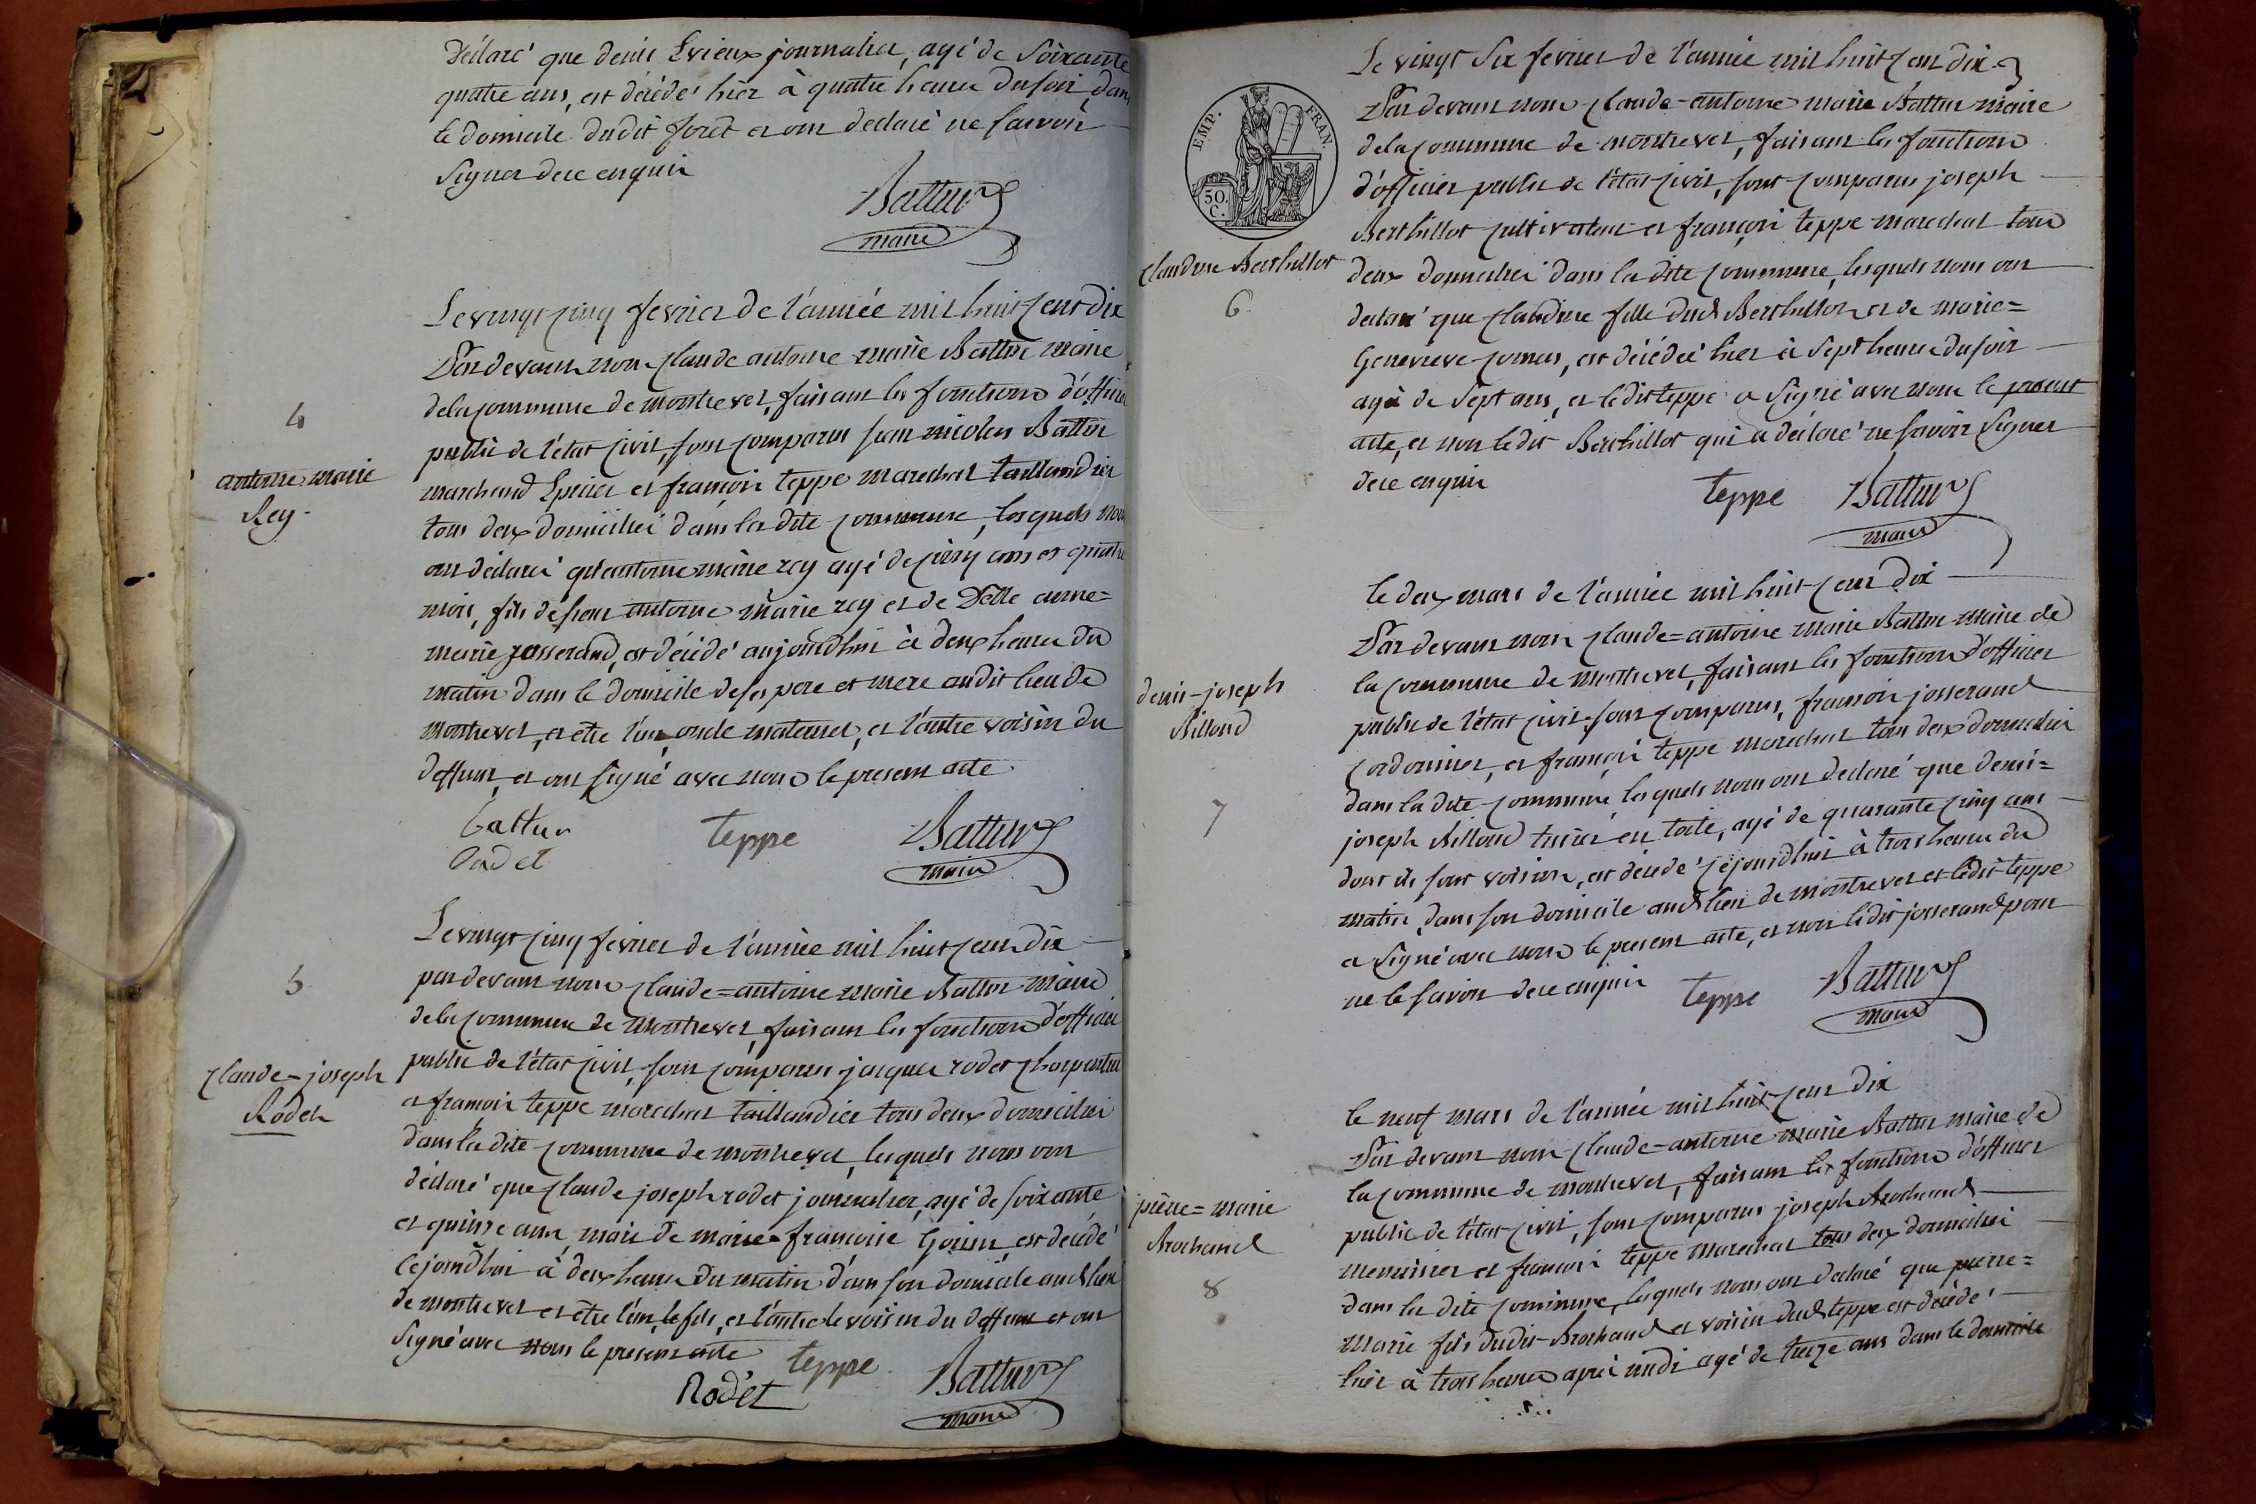 Déclaré que denis Evieux journalier, agé de Soixante
quatre ans, est décédé hier à quatre heures du soir, dans
le domicile dudit foret et ont declaré ne savoir
signer de ce enquis
Battur
maire
Le vingt cinq fevrier de l'année mil huit cent dix
Par devant nous Claude antoine marie Battur maire
de la commune de montrevel, faisant les fonctions d'officier
public de l'état civil, sont comparus jean nicolas Battur
marchand Epicier et françois teppe marechal taillandier
tous deux domiciliés dans la dite commune, lesquels nous
ont déclaré qu'antoine marie rey agé de cinq ans et quatre
mois, fils de sieur antoine marie rey et de Delle anne=
marie josserand, est décédé aujourdhui à deux heures du
matin dans le domicile de ses pere et mere audit lieu de
montrevel, et etre l'un, oncle maternel, et l'autre voisin du
deffunt, et ont signé avec nous le present acte
4
antoine marie
Rey
Battur
Cadet
teppe
Battur
maire
Le vingt cinq fevrier de l'année mil huit cent dix
par devant nous Claude=antoine marie Battur maire
de la commune de montrevel, faisant les fonctions d'officier
public de l'état civil, sont comparus jacques rodet charpentier
et françois teppe marechal taillandier tous deux domiciliés
dans la dite commune de montrevel, lesquels nous ont
déclaré que Claude joseph rodet journalier, agé de soixante
et quinze ans mari de marie=francoise Gorin, est décédé
Ce jourdhui à deux heures du matin dans son domicile aud. lieu
de montrevel et etre l'un, le fils, et l'autre le voisin du deffunt et ont
signé avec nous le present acte
5
Claude=joseph
Rodet
teppe
Rodet
Battur
maire
EMP. FRAN.
50.
C.
Le vingt six fevrier de l'année mil huit cent dix
Par devant nous Claude=antoine marie Battur maire
de la commune de montrevel, faisant les fonctions
d'officier public de l'état civil, sont comparus joseph
Berthillot cultivateur et françois teppe marechal tous
deux domiciliés dans la dite commune, lesquels nous ont
declaré que Claudine fille dud. Berthillot et de marie=
Genevieve comas, est décédée hier à sept heures du soir
agée de sept ans, et ledit teppe a signé avec nous le present
acte, et non ledit Berthillot qui a déclaré ne savoir signer
de ce enquis
Claudine Berthillot
6
teppe
Battur
maire
le deux mars de l'année mil huit cent dix
Par devant nous Claude=antoine marie Battur maire de
la commune de montrevel, faisant les fonctions d'officier
public de l'état civil, sont comparus, françois josserand
cordonnier, et françois teppe marechal tous deux domiciliés
dans la dite commune, lesquels nous ont declaré que denis=
joseph Billoud tissier en toile, agé de quarante cinq ans
dont ils sont voisins, est décédé cejourdhui à trois heures du
matin dans son domicile aud. lieu de montrevel et ledit teppe
a signé avec nous le present acte, et non ledit josserand pour
ne le savoir de ce enquis
denis=joseph
Billoud
7
teppe
Battur
maire
le neuf mars de l'année mil huit cent dix
Par devant nous Claude=antoine marie Battur maire de
la commune de montrevel, faisant les fonctions d'officier
public de l'état civil, sont comparus joseph Brochand
menuisier et françois teppe marechal tous deux domiciliés
dans la dite commune, lesquels nous ont declaré que pierre=
marie fils dudit Brochand et voisin dud. teppe est décédé
hier à trois heures après midi agé de treize ans dans le domicile
pierre=marie
Brochand
8